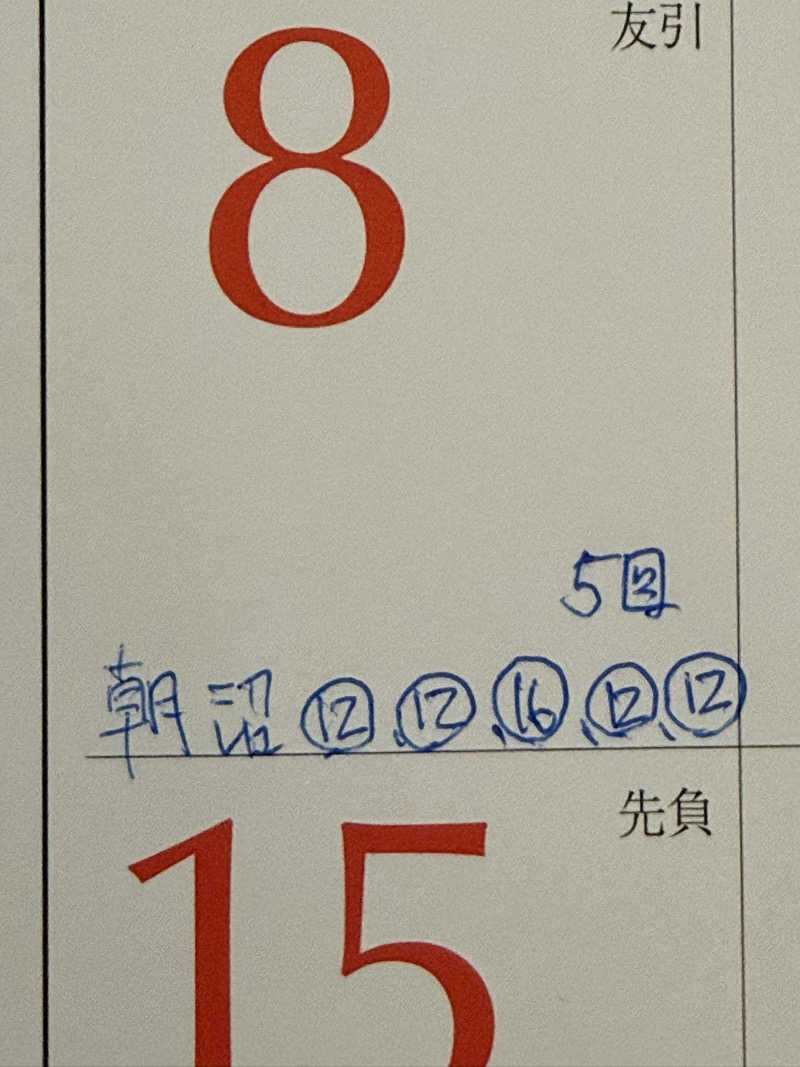 友引
8
5回
朝沼⑫、⑫、⑯、⑫、⑫
先負
15